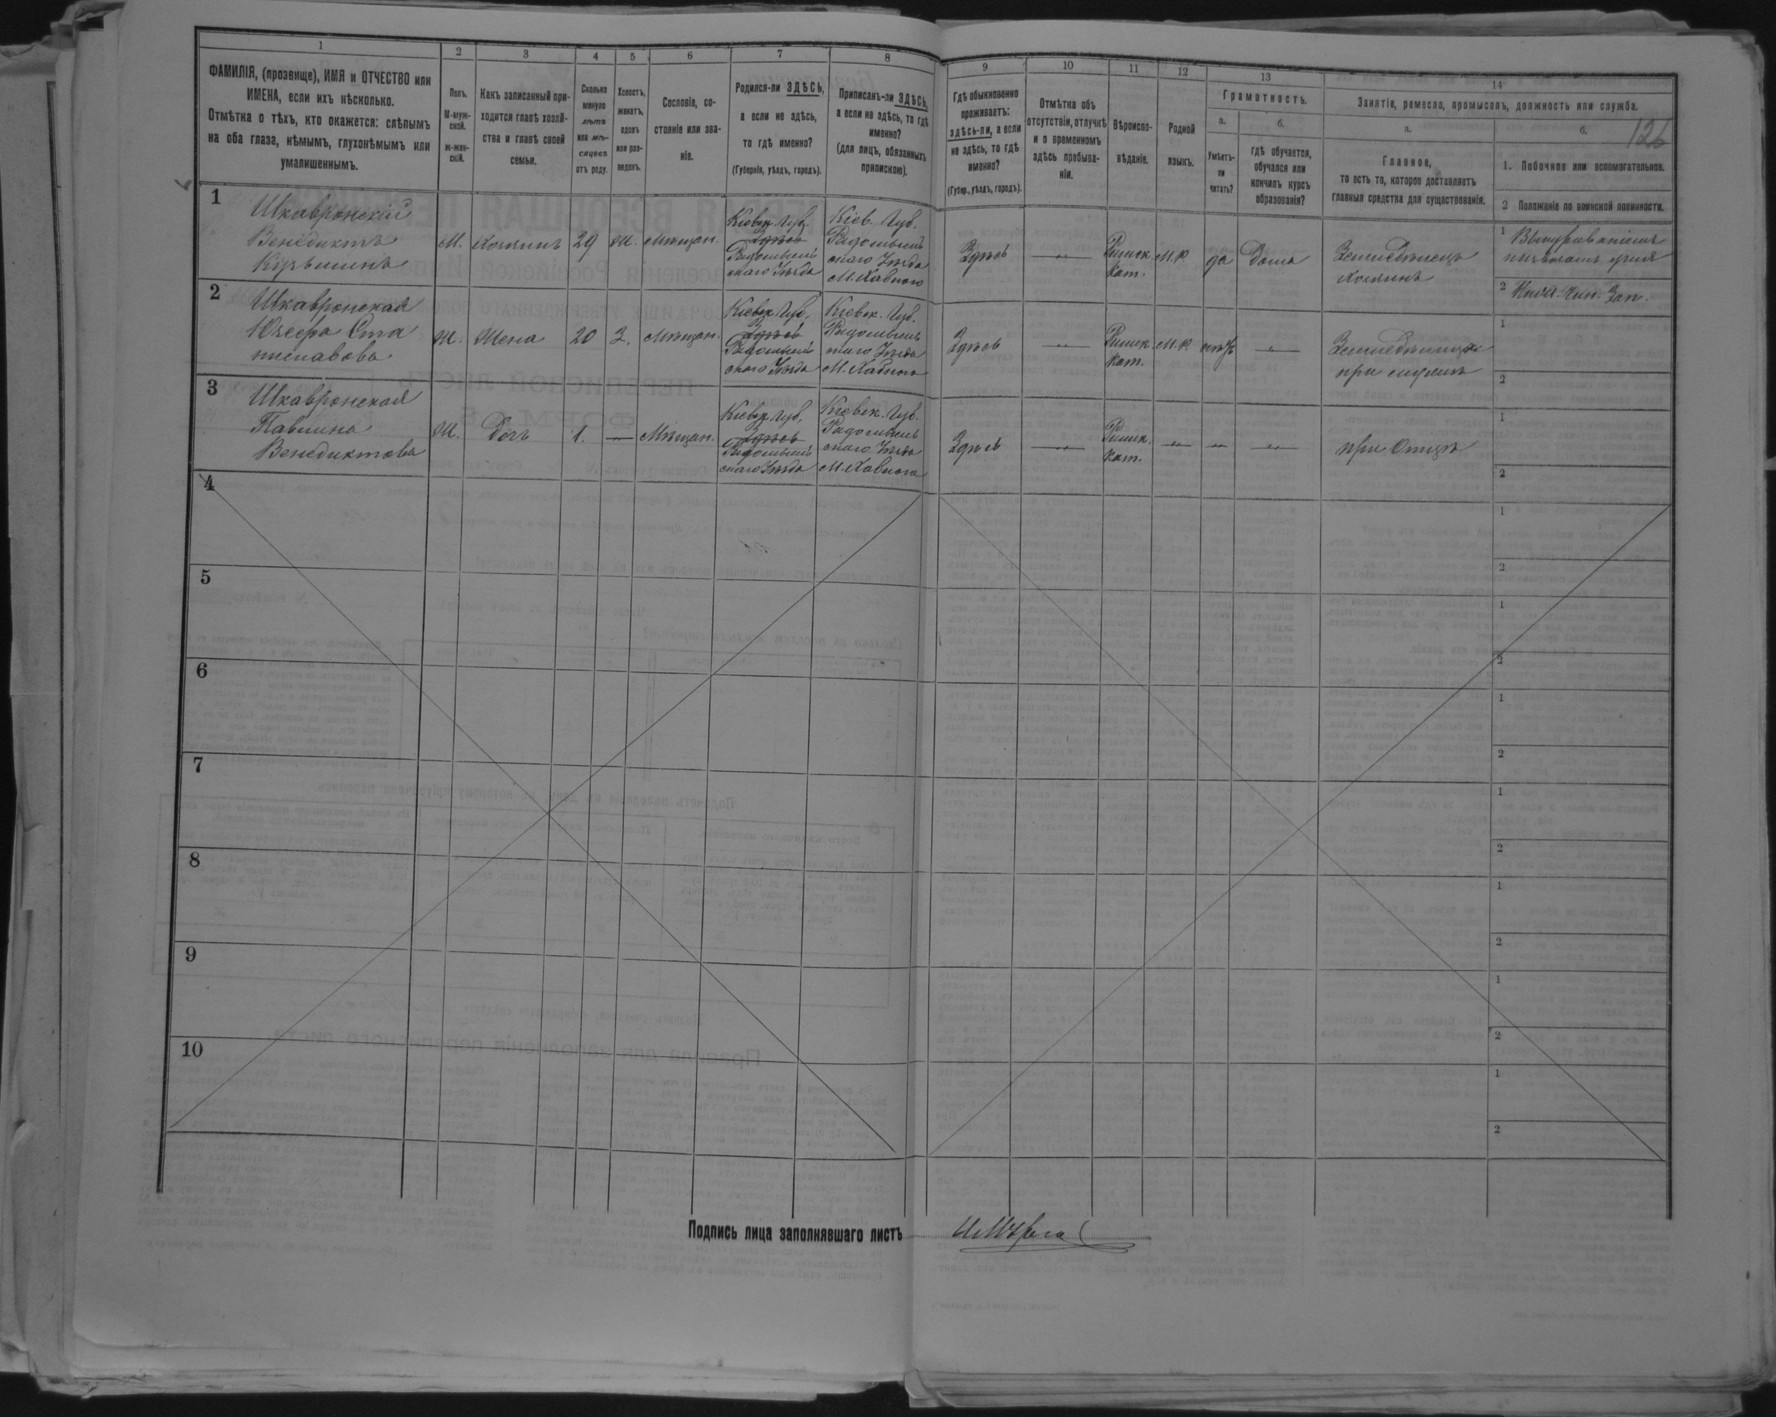 1 2 3 4 5 6 7 8 9 10 11 12 13 14
126
ФАМИЛІЯ, (прозвище), ИМЯ и ОТЧЕСТВО или
ИМЕНА, если ихъ нѣсколько.
Отмѣтка о тѣхъ, кто окажется: слѣпымъ
на оба глаза, нѣмымъ, глухонѣмымъ или
умалишеннымъ.
Полъ.
М-муж-
ской.
ж-жен-
скій.
Какъ записанный при-
ходится главѣ хозяй-
ства и главѣ своей
семьи.
Сколько
минуло
лѣтъ
или мѣ-
сяцевъ
отъ роду.
Холостъ,
женатъ,
вдовъ
или раз-
веденъ.
Сословіе, со-
стояніе или зва-
ніе.
Родился-ли ЗДѢСЬ,
а если не здѣсь,
то гдѣ именно?
(Губернія, уѣздъ, городъ).
Приписанъ-ли ЗДѢСЬ,
а если не здѣсь, то гдѣ
именно?
(для лицъ, обязанныхъ
припискою).
Гдѣ обыкновенно
проживаетъ:
здѣсь-ли, а если
не здѣсь, то гдѣ
именно?
(Губер., уѣздъ, городъ).
Отмѣтка объ
отсутствіи, отлучкѣ
и о временномъ
здѣсь пребыва-
ніи.
Вѣроиспо-
вѣданіе.
Родной
языкъ.
Грамотность.
а.
Умѣетъ-
ли
читать?
б.
гдѣ обучается,
обучался или
кончилъ курсъ
образованія?
Занятіе, ремесло, промыселъ, должность или служба.
а.
Главное,
то есть то, которое доставляетъ
главныя средства для существованія.
б.
1. Побочное или вспомогательное.
2 Положеніе по воинской повинности.
1
Шкавронскій
Венедиктъ
М.
Хозяинъ
29
Ж.
Мѣщан.
Кіевск. Губ.
Здѣсь
Радомысль
скаго Уѣзда
Кіев. Губ.
Радомысль
скаго Уѣзда
М. Хабного
Здѣсь
Римск.
Кат.
да
Дома
Земледѣлецъ
хозяинъ
1
2
2
Шкавронская
Юзефа Ста
ниславова
Ж.
Жена
20
З.
Мѣщан.
Кіевск. Губ.
Здѣсь
Радомысль
скаго Уѣзда
Кіевск. Губ.
Радомысль
скаго Уѣзда
М. Хабного
Здѣсь
Римск.
Кат.
нѣтъ
при мужѣ
1
2
3
Шкавронская
Павлина
Венедиктова
Ж.
Дочь
1.
Мѣщан.
Кіевск. Губ.
Здѣсь
Радомысль
скаго Уѣзда
Кіевск. Губ.
Радомысль
скаго Уѣзда
М. Хабного
Здѣсь
Римск.
Кат.
при Отцѣ
1
2
4
1
2
5
1
2
6
1
2
7
1
2
8
1
2
9
1
2
10
1
2
Подпись лица заполнявшаго листъ